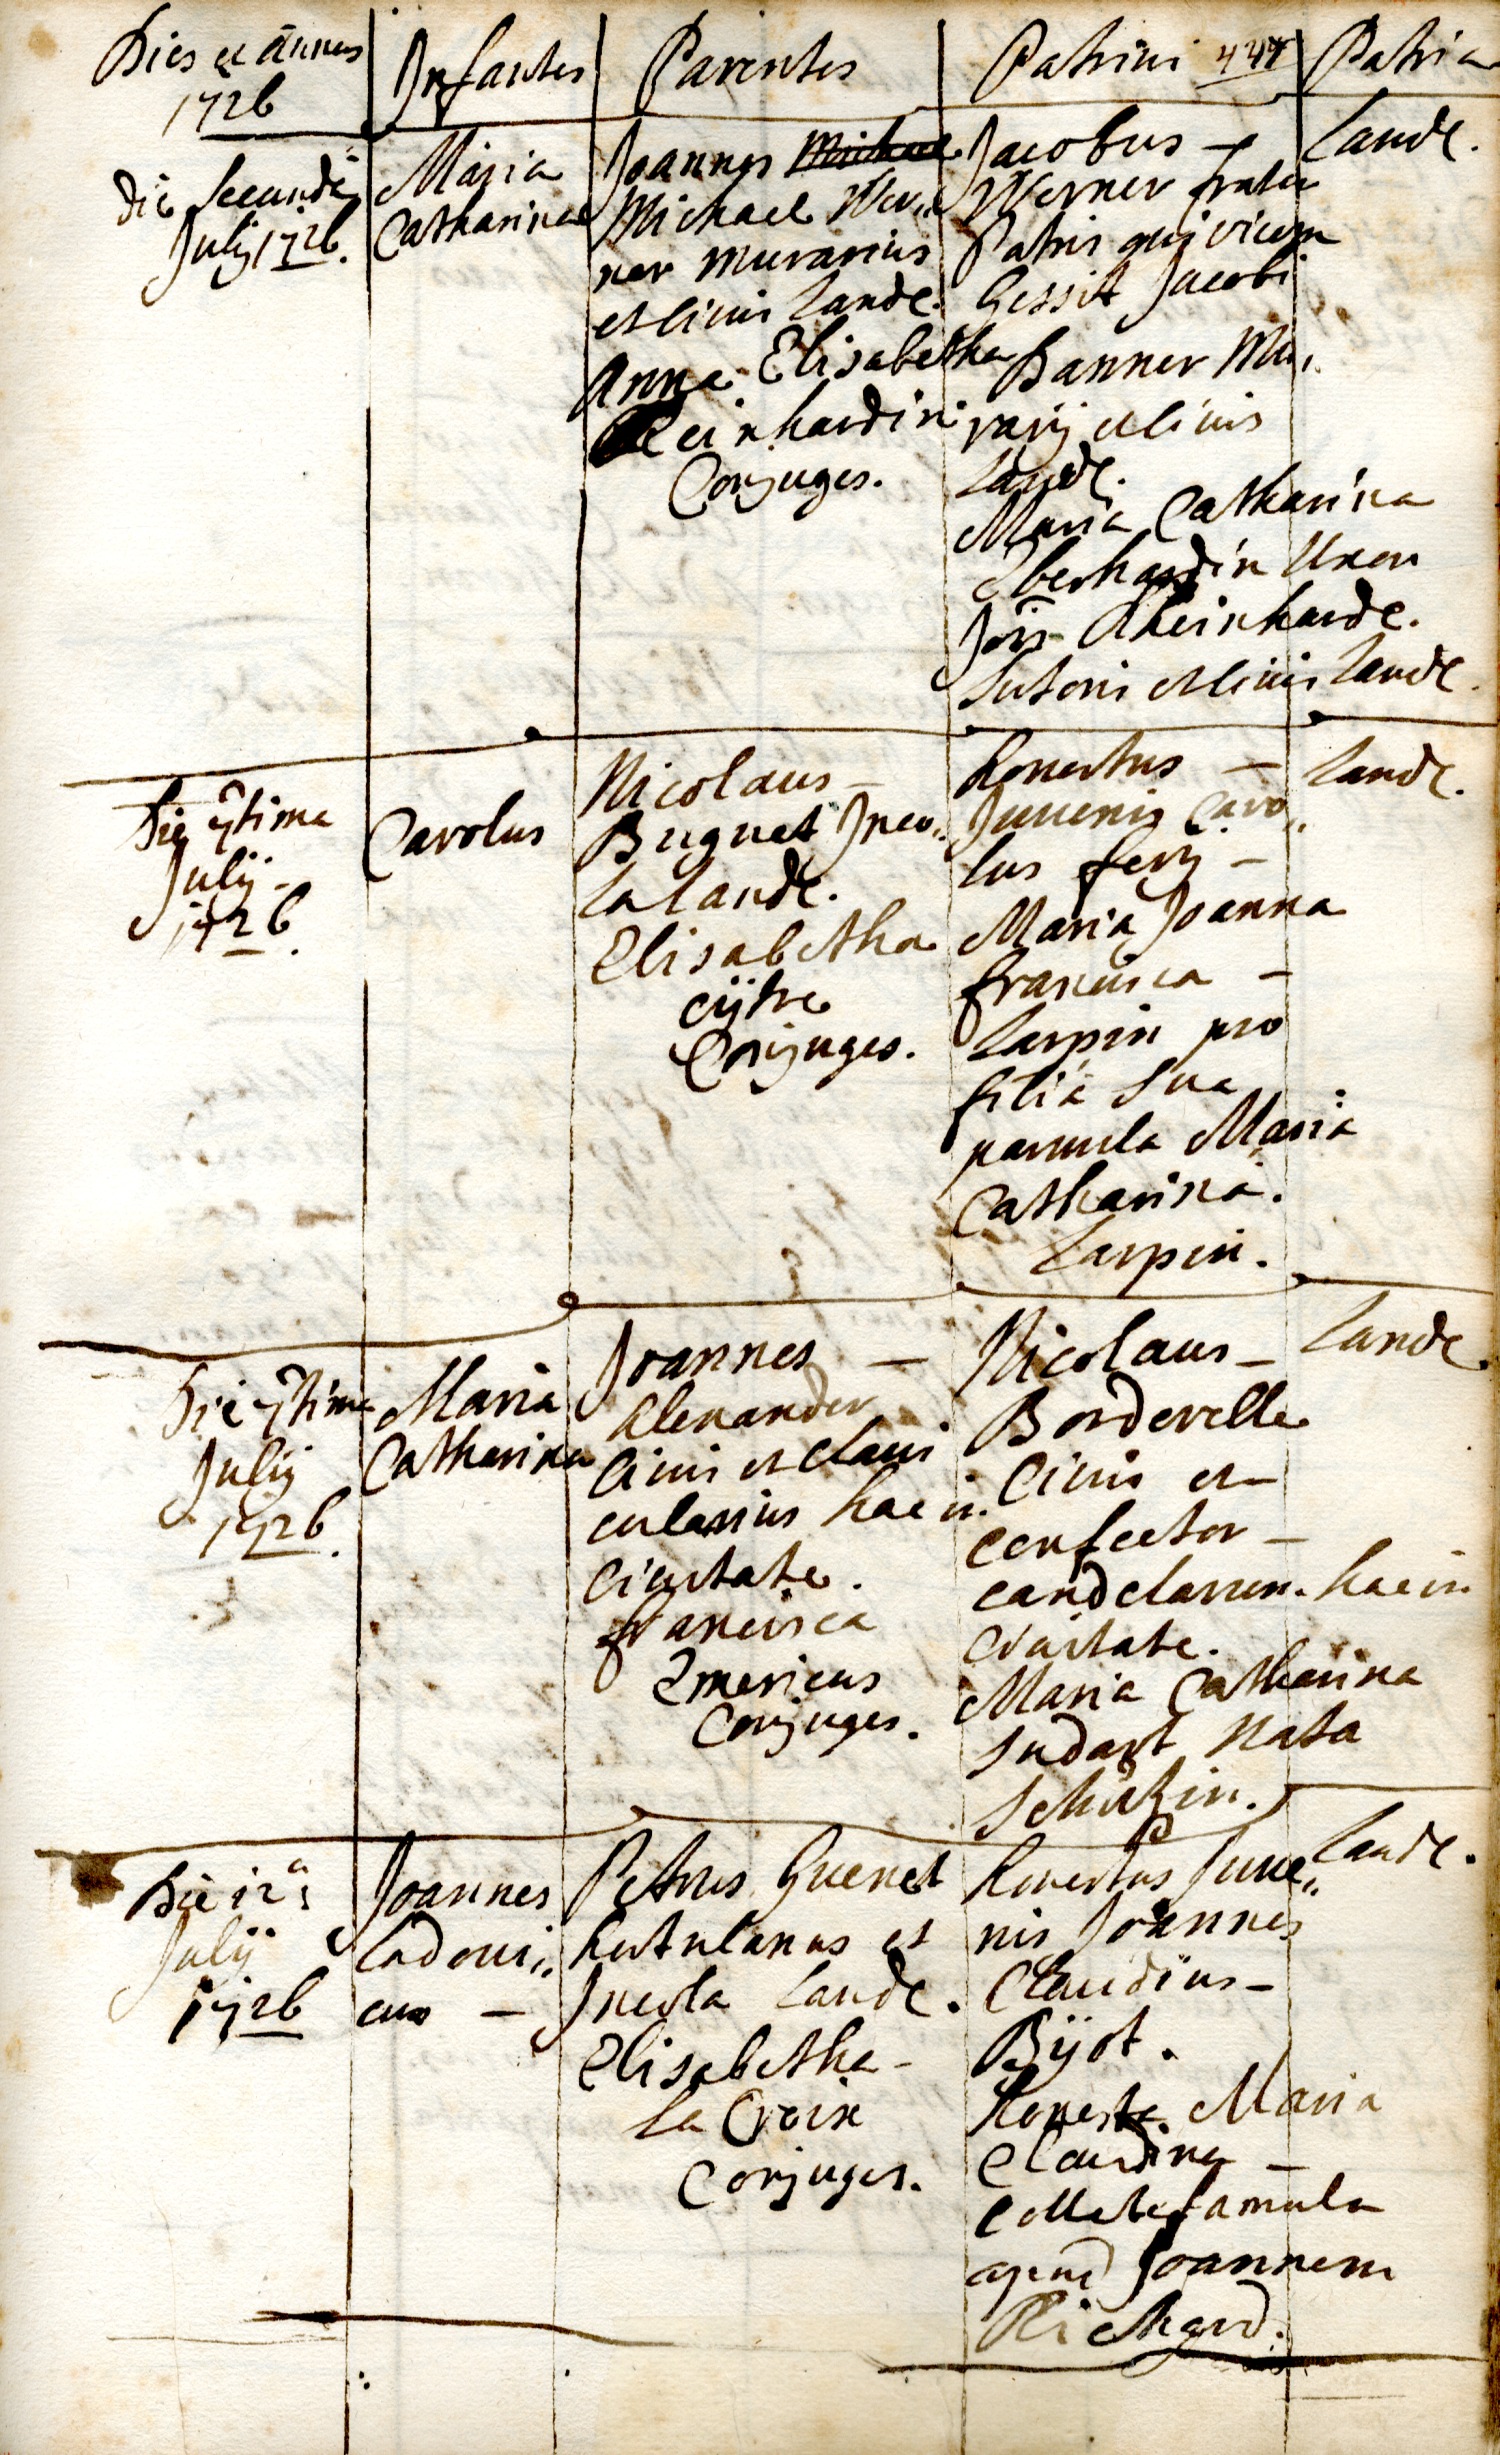 Dies et annus
1726
Infantes
Parentes
Patrini
Patria
die secunda
July 1726.
Maria
Catharina
Joannes Michael
Michael Wer„
ner murarius
et civis Lande.
Anna Elisabetha
Reinhardin
Conjuges.
Jacobus –
Werner frater
Patris qui vicem
gessit Jacobi
Banner Mu„
rarij et civis
Lande.
Maria Catharina
Eberhardin Uxor
Jois Rheinhard.
sutoris et civis Lande.
Lande.
Die 7tima
Julij –
1726.
Carolus
Nicolaus –
Buguet Inco„
la Lande.
Elisabetha
Conjuges.
Honestus –
Juvenis Caro„
lus fery –
Maria Joanna
francisca –
Larpin pro
filia sua
parvula Maria
Catharina.
Larpin.
Lande.
Die 7tima
July
1726.
Maria
Catharina
Joannes –
Alexander
Civis et Clavi
cularius hac in
Civitate.
francisca
Emericus
Conjuges.
Nicolaus –
Bordevelle
Civis et
confector –
candelarum hac in
Civitate.
Maria Catharina
Sudart nata
Schützin.
Lande.
Die 12a
Julij
1726
Joannes
Lodovi„
cus –
Petrus Guenet
hortulanus et
Incola Lande.
Elisabetha –
La Croix
Conjuges.
Honestus Juve„
nis Joannes
Claudius –
Bijot.
Honesta Maria
Claudina –
Collete famula
apud Joannem
Richard.
Lande.